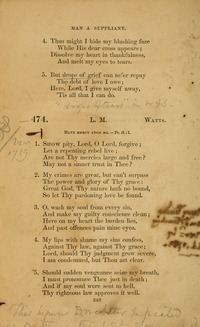 MAN A SUPPLIANT.
4. Thus might I hide my blushing face
While His dear cross appears;
Dissolve my heart in thankfulness,
And melt my eyes to tears.
5. But drops of grief can ne'er repay
The debt of love I owe;
Here, Lord, I give myself away,
'Tis all that I can do.
474. L. M. WATTS.
HAVE MERCY UPON ME.—Ps. 51:1.
1. SHOW pity, Lord, O Lord, forgive;
Let a repenting rebel live;
Are not Thy mercies large and free?
May not a sinner trust in Thee?
2. My crimes are great, but can't surpass
The power and glory of Thy grace:
Great God, Thy nature hath no bound,
So let Thy pardoning love be found.
3. O, wash my soul from every sin,
And make my guilty conscience clean;
Here on my heart the burden lies,
And past offences pain mine eyes.
4. My lips with shame my sins confess,
Against Thy law, against Thy grace;
Lord, should Thy judgment grow severe,
I am condemned, but Thou art clear.
5. Should sudden vengeance seize my breath,
I must pronounce Thee just in death;
And if my soul were sent to hell,
Thy righteous law approves it well.